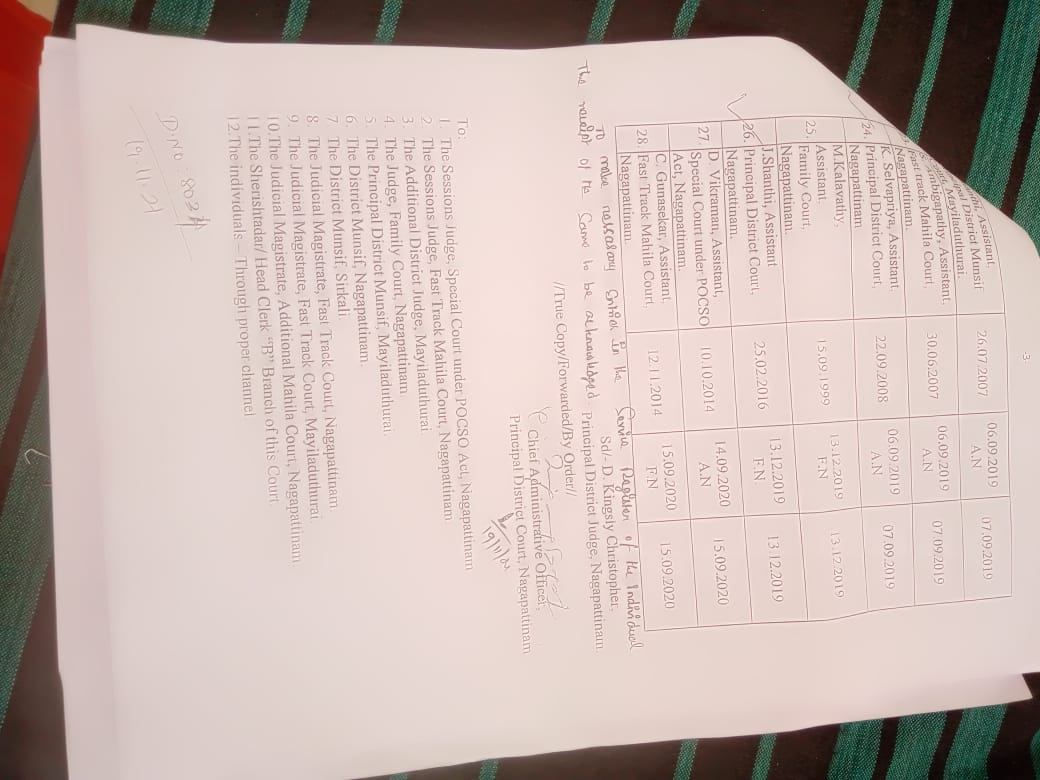 3
Assistant, 26.07.2007 06.09.2019 07.09.2019
District Munsif A.N
Mayiladuthurai.
Assistant, 30.06.2007 06.09.2019 07.09.2019
Fast track Mahila Court, A.N
Nagapattinam.
24. K. Selvapriya, Assistant 22.09.2008 06.09.2019 07.09.2019
Principal District Court, A.N
Nagapattinam
25. M.Kalavathy, 15.09.1999 13.12.2019 13.12.2019
Assistant, F.N
Family Court,
Nagapattinam.
26. J.Shanthi, Assistant 25.02.2016 13.12.2019 13.12.2019
Principal District Court, F.N
Nagapattinam.
27. D. Vikraman, Assistant, 10.10.2014 14.09.2020 15.09.2020
Special Court under POCSO A.N
Act, Nagapattinam.
28. C. Gunasekar, Assistant, 12.11.2014 15.09.2020 15.09.2020
Fast Track Mahila Court, F.N
Nagapattinam.
To make necessary entries in the Service Register of the Individual
Sd/- D. Kingsly Christopher,
The receipt of the Same to be acknowledged Principal District Judge, Nagapattinam.
//True Copy/Forwarded/By Order//
Chief Administrative Officer,
Principal District Court, Nagapattinam
To:
1. The Sessions Judge, Special Court under POCSO Act, Nagapattinam
2. The Sessions Judge, Fast Track Mahila Court, Nagapattinam
3 The Additional District Judge, Mayiladuthurai
4. The Judge, Family Court, Nagapattinam.
5. The Principal District Munsif, Mayiladuthurai,
6. The District Munsif, Nagapattinam.
7 The District Munsif, Sirkali
8. The Judicial Magistrate, Fast Track Court, Nagapattinam.
9. The Judicial Magistrate, Fast Track Court, Mayiladuthurai
10.The Judicial Magistrate, Additional Mahila Court, Nagapattinam
11.The Sherishtradar/ Head Clerk "B" Branch of this Court.
12.The individuals – Through proper channel
D.No
19.11.21